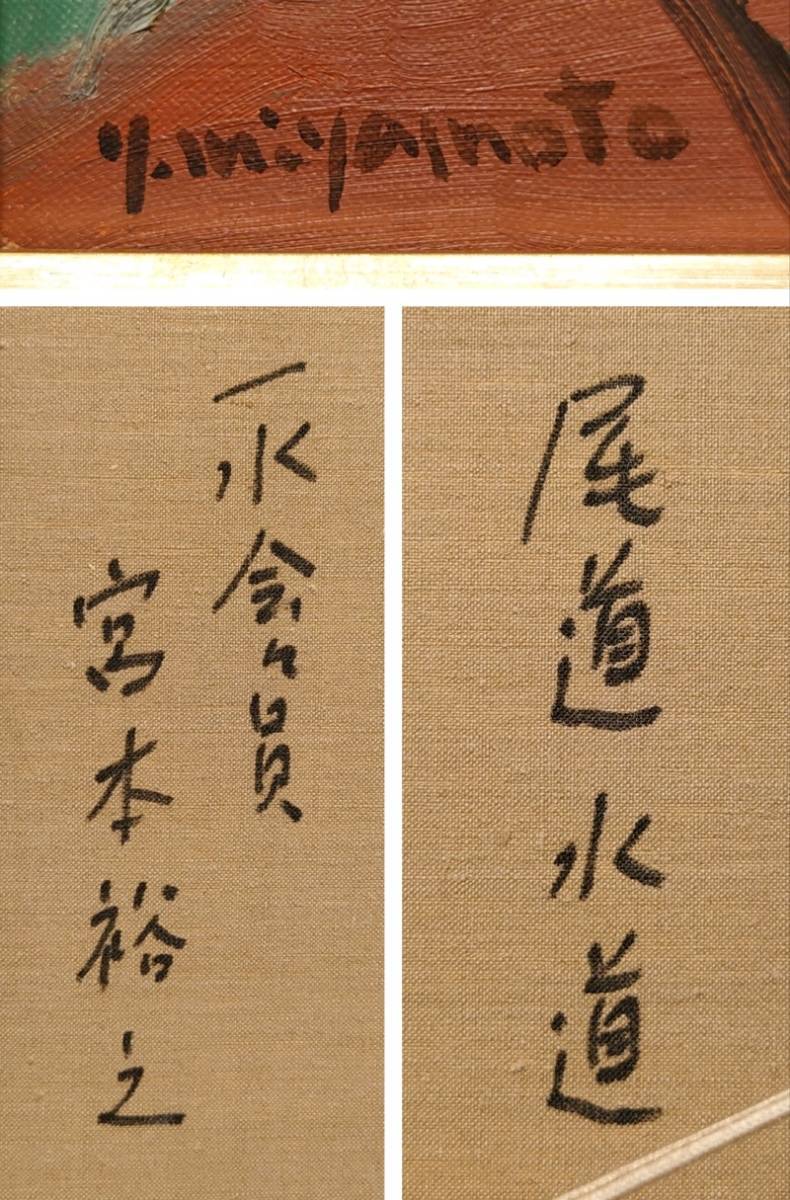 y.miyamoto
一水会々員
宮本裕之
尾道水道